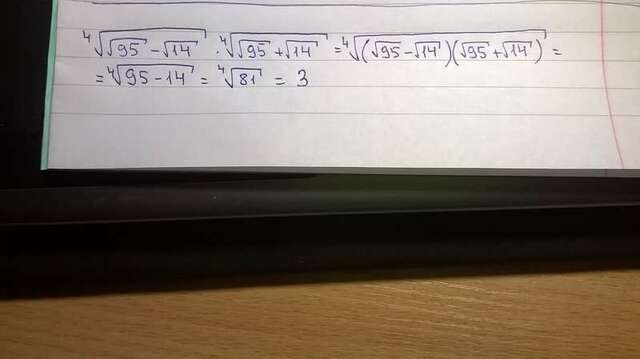 ⁴√(√95 - √14) · ⁴√(√95 + √14) = ⁴√((√95 - √14)(√95 + √14)) =
= ⁴√(95 - 14) = ⁴√81 = 3